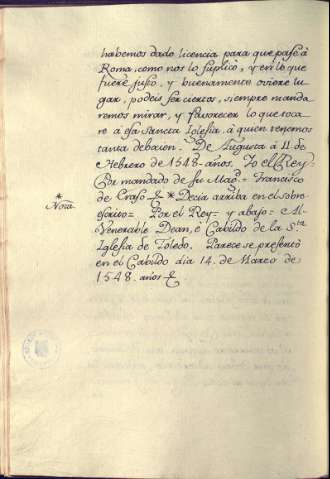 habemos dado licencia para que pase à
Roma, como nos lo suplicó, y en lo que
fuere justo, y buenamente oviere lu-
gar, podeis ser ciertos, siempre manda-
remos mirar, y favorecer lo que toca-
re à esa Sancta Iglesia, à quien tenemos
tanta debocion. De Augusta à 11 de
Hebrero de 1548 años. Yo el Rey-
Por mandado de su Magd. - Francisco
de Eraso
* Decia arriba en el sobre
* Nota
escrito= Por el Rey- y abajo= Al
Venerable Dean, è Cabildo de la Sta
Iglesia de Toledo. Parece se presentó
en el Cabildo dia 14. de Marzo de
1548. años